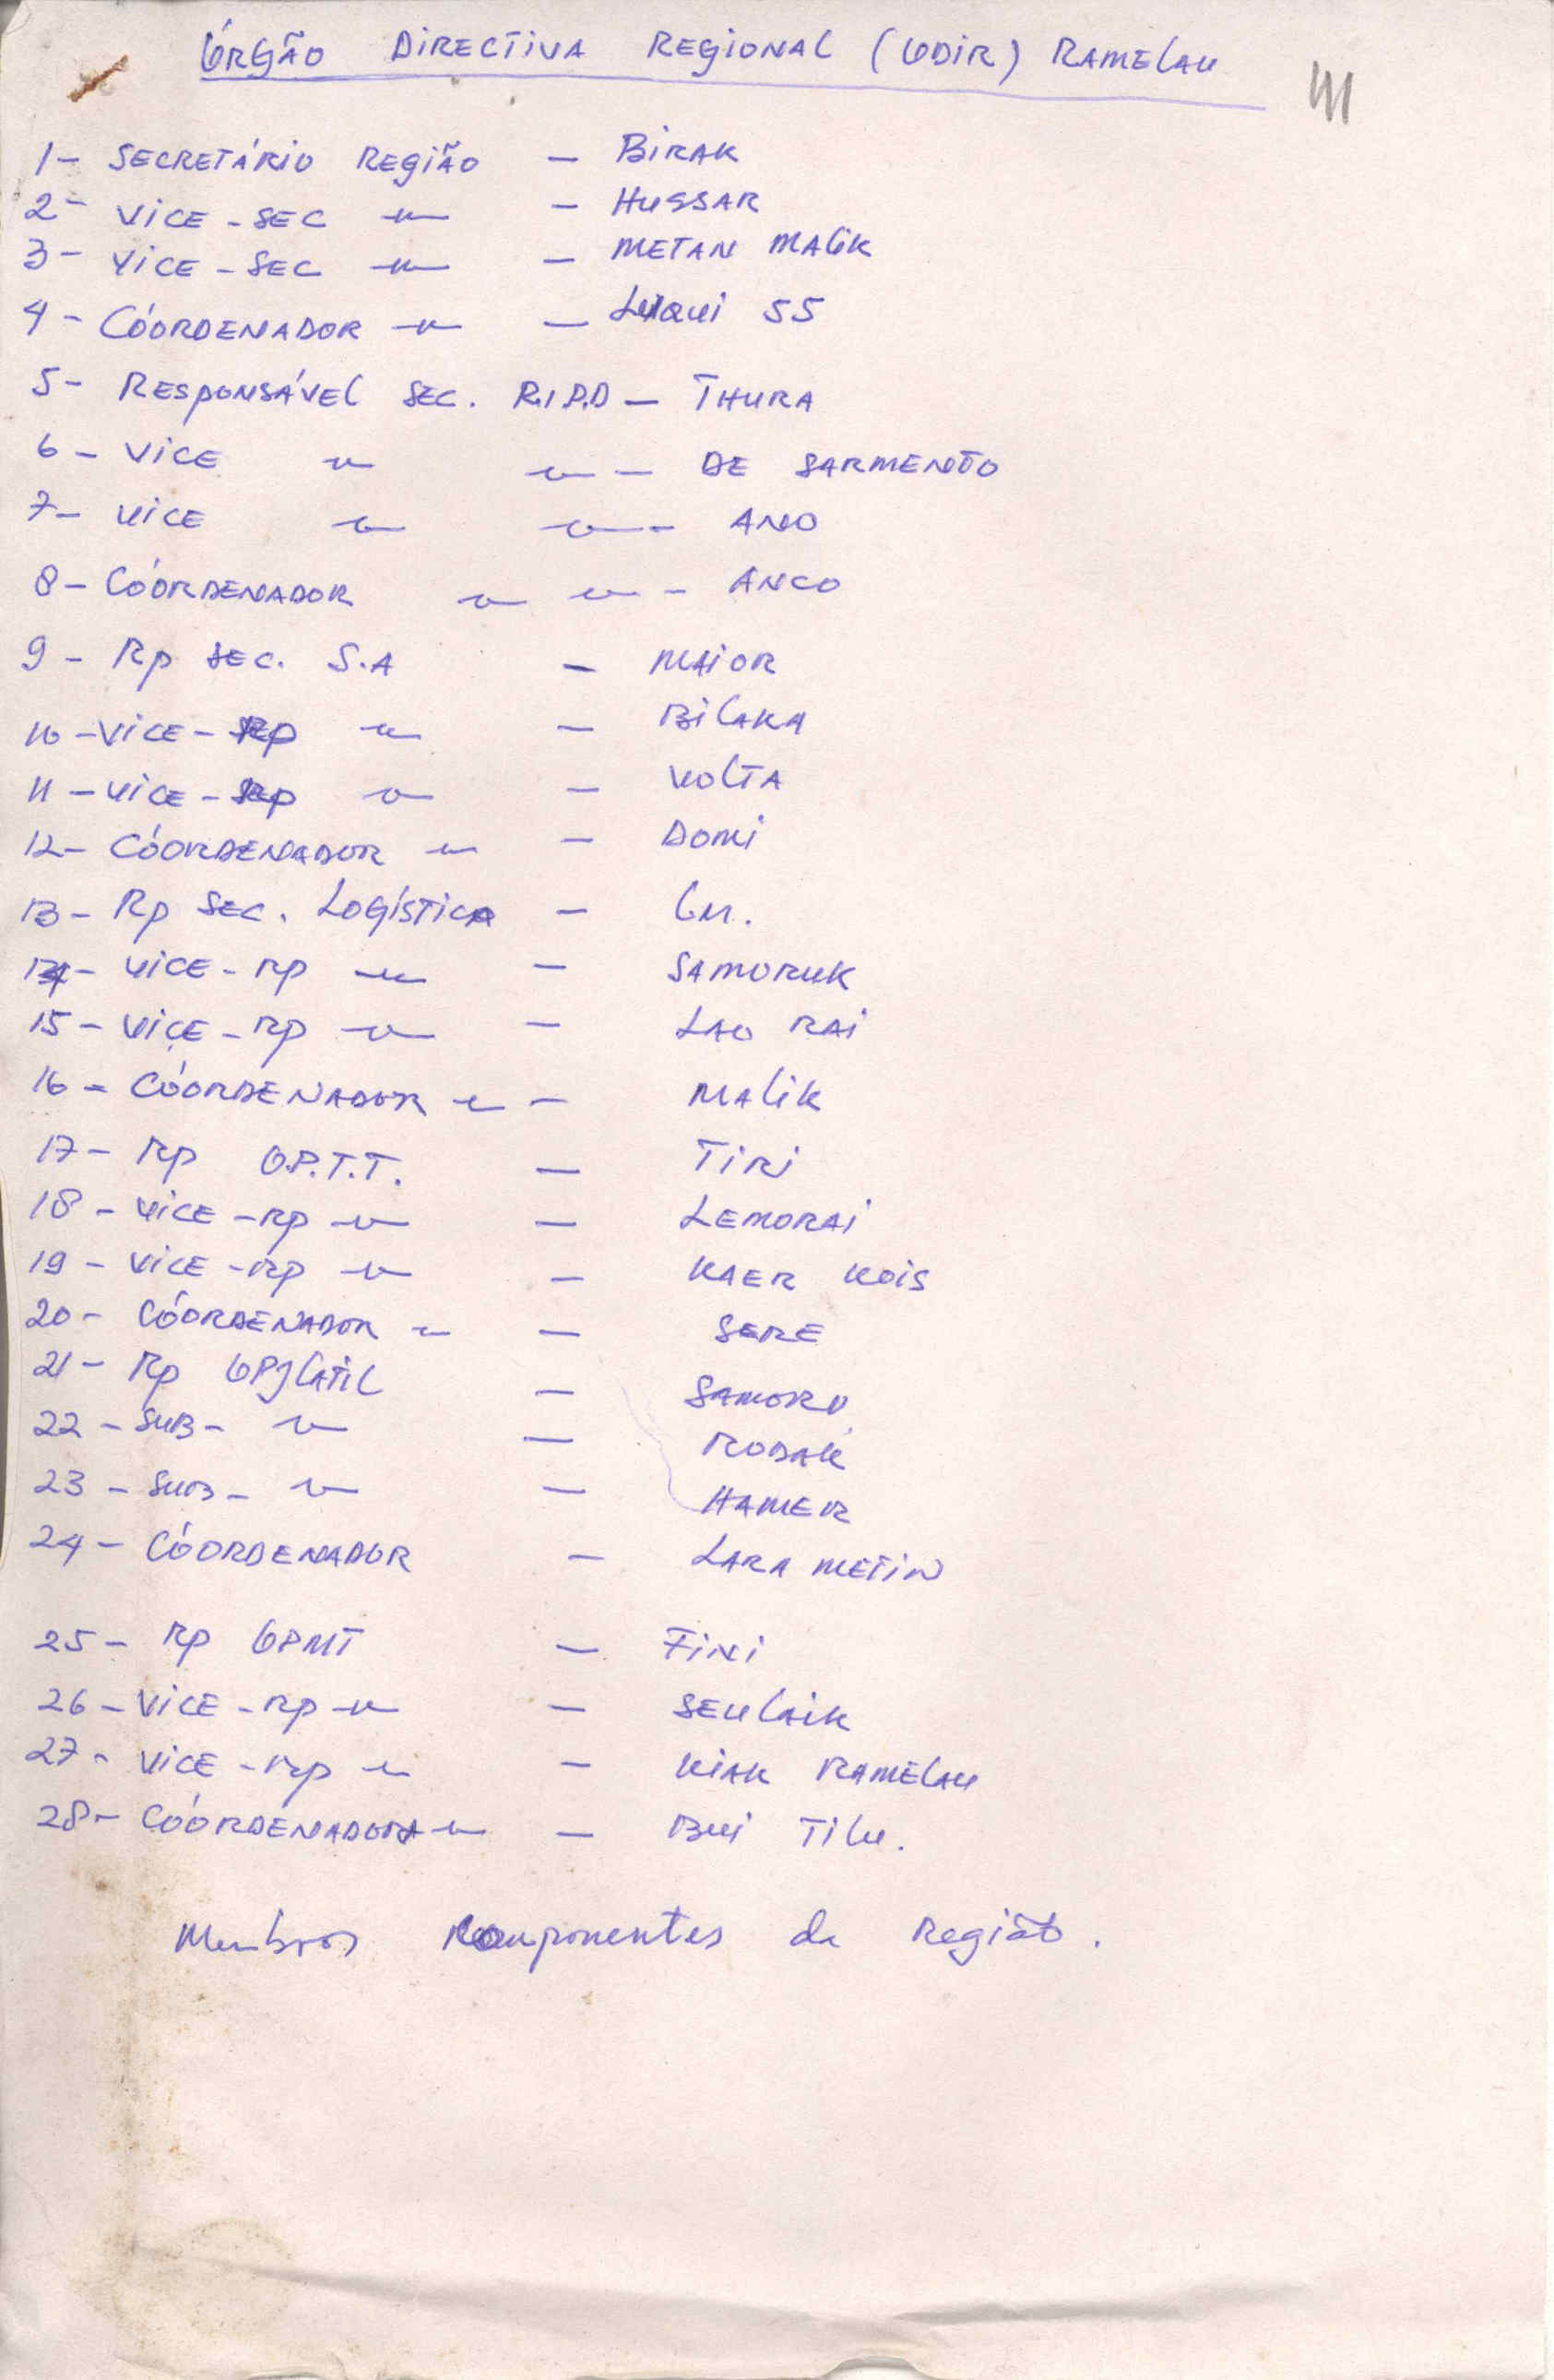 ÓRGÃO DIRECTIVA REGIONAL (ODIR) RAMELAU
1- SECRETÁRIO REGIÃO - BIRAK
2- VICE-SEC -"- - HUSSAR
3- VICE-SEC -"- - METAN MALIK
4- CÓORDENADOR -"- - 55
5- RESPONSÁVEL SEC. R.I.P.D - THURA
6- VICE " -"- - DE SARMENTO
7- VICE -"- -"- - ANO
8- CÓORDENADOR -"- -"- - ANCO
9- Rp SEC. S.A - MAIOR
10- VICE-Rp -"- - BILAKA
11- VICE-Rp -"- - VOLTA
12- CÓORDENADOR -"- - DOMI
13- Rp SEC. LOGÍSTICA -
14- VICE-Rp -"- - SAMORUK
15- VICE-Rp -"- - LAO RAI
16- CÓORDENADOR -"- - MALIK
17- Rp O.P.T.T. - TIRI
18- VICE-Rp -"- - LEMORAI
19- VICE-Rp -"- - KAER KOIS
20- CÓORDENADOR -"- - SERE
21- Rp OPJLATIL - SAMORO
22- SUB- -"- - RODAK
23- SUB- -"- - HAMER
24- CÓORDENADOR - LARA METIN
25- Rp OPMT - FINI
26- VICE-Rp -"- - SEULAIK
27- VICE-Rp -"- - KIAK RAMELAU
28- CÓORDENADORA -"- - BUI TILU.
Membros Componentes da Região.